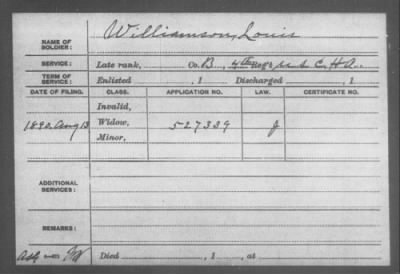 NAME OF SOLDIER: Williamson, Louis
SERVICE: Late rank, Co. B, 4th Reg't U S C H A.
TERM OF SERVICE: Enlisted , 1 Discharged , 1
DATE OF FILING. CLASS. APPLICATION NO. LAW. CERTIFICATE NO.
Invalid,
1890, Aug 13 Widow, 527339 J
Minor,
ADDITIONAL SERVICES:
REMARKS:
Died , 1 , at